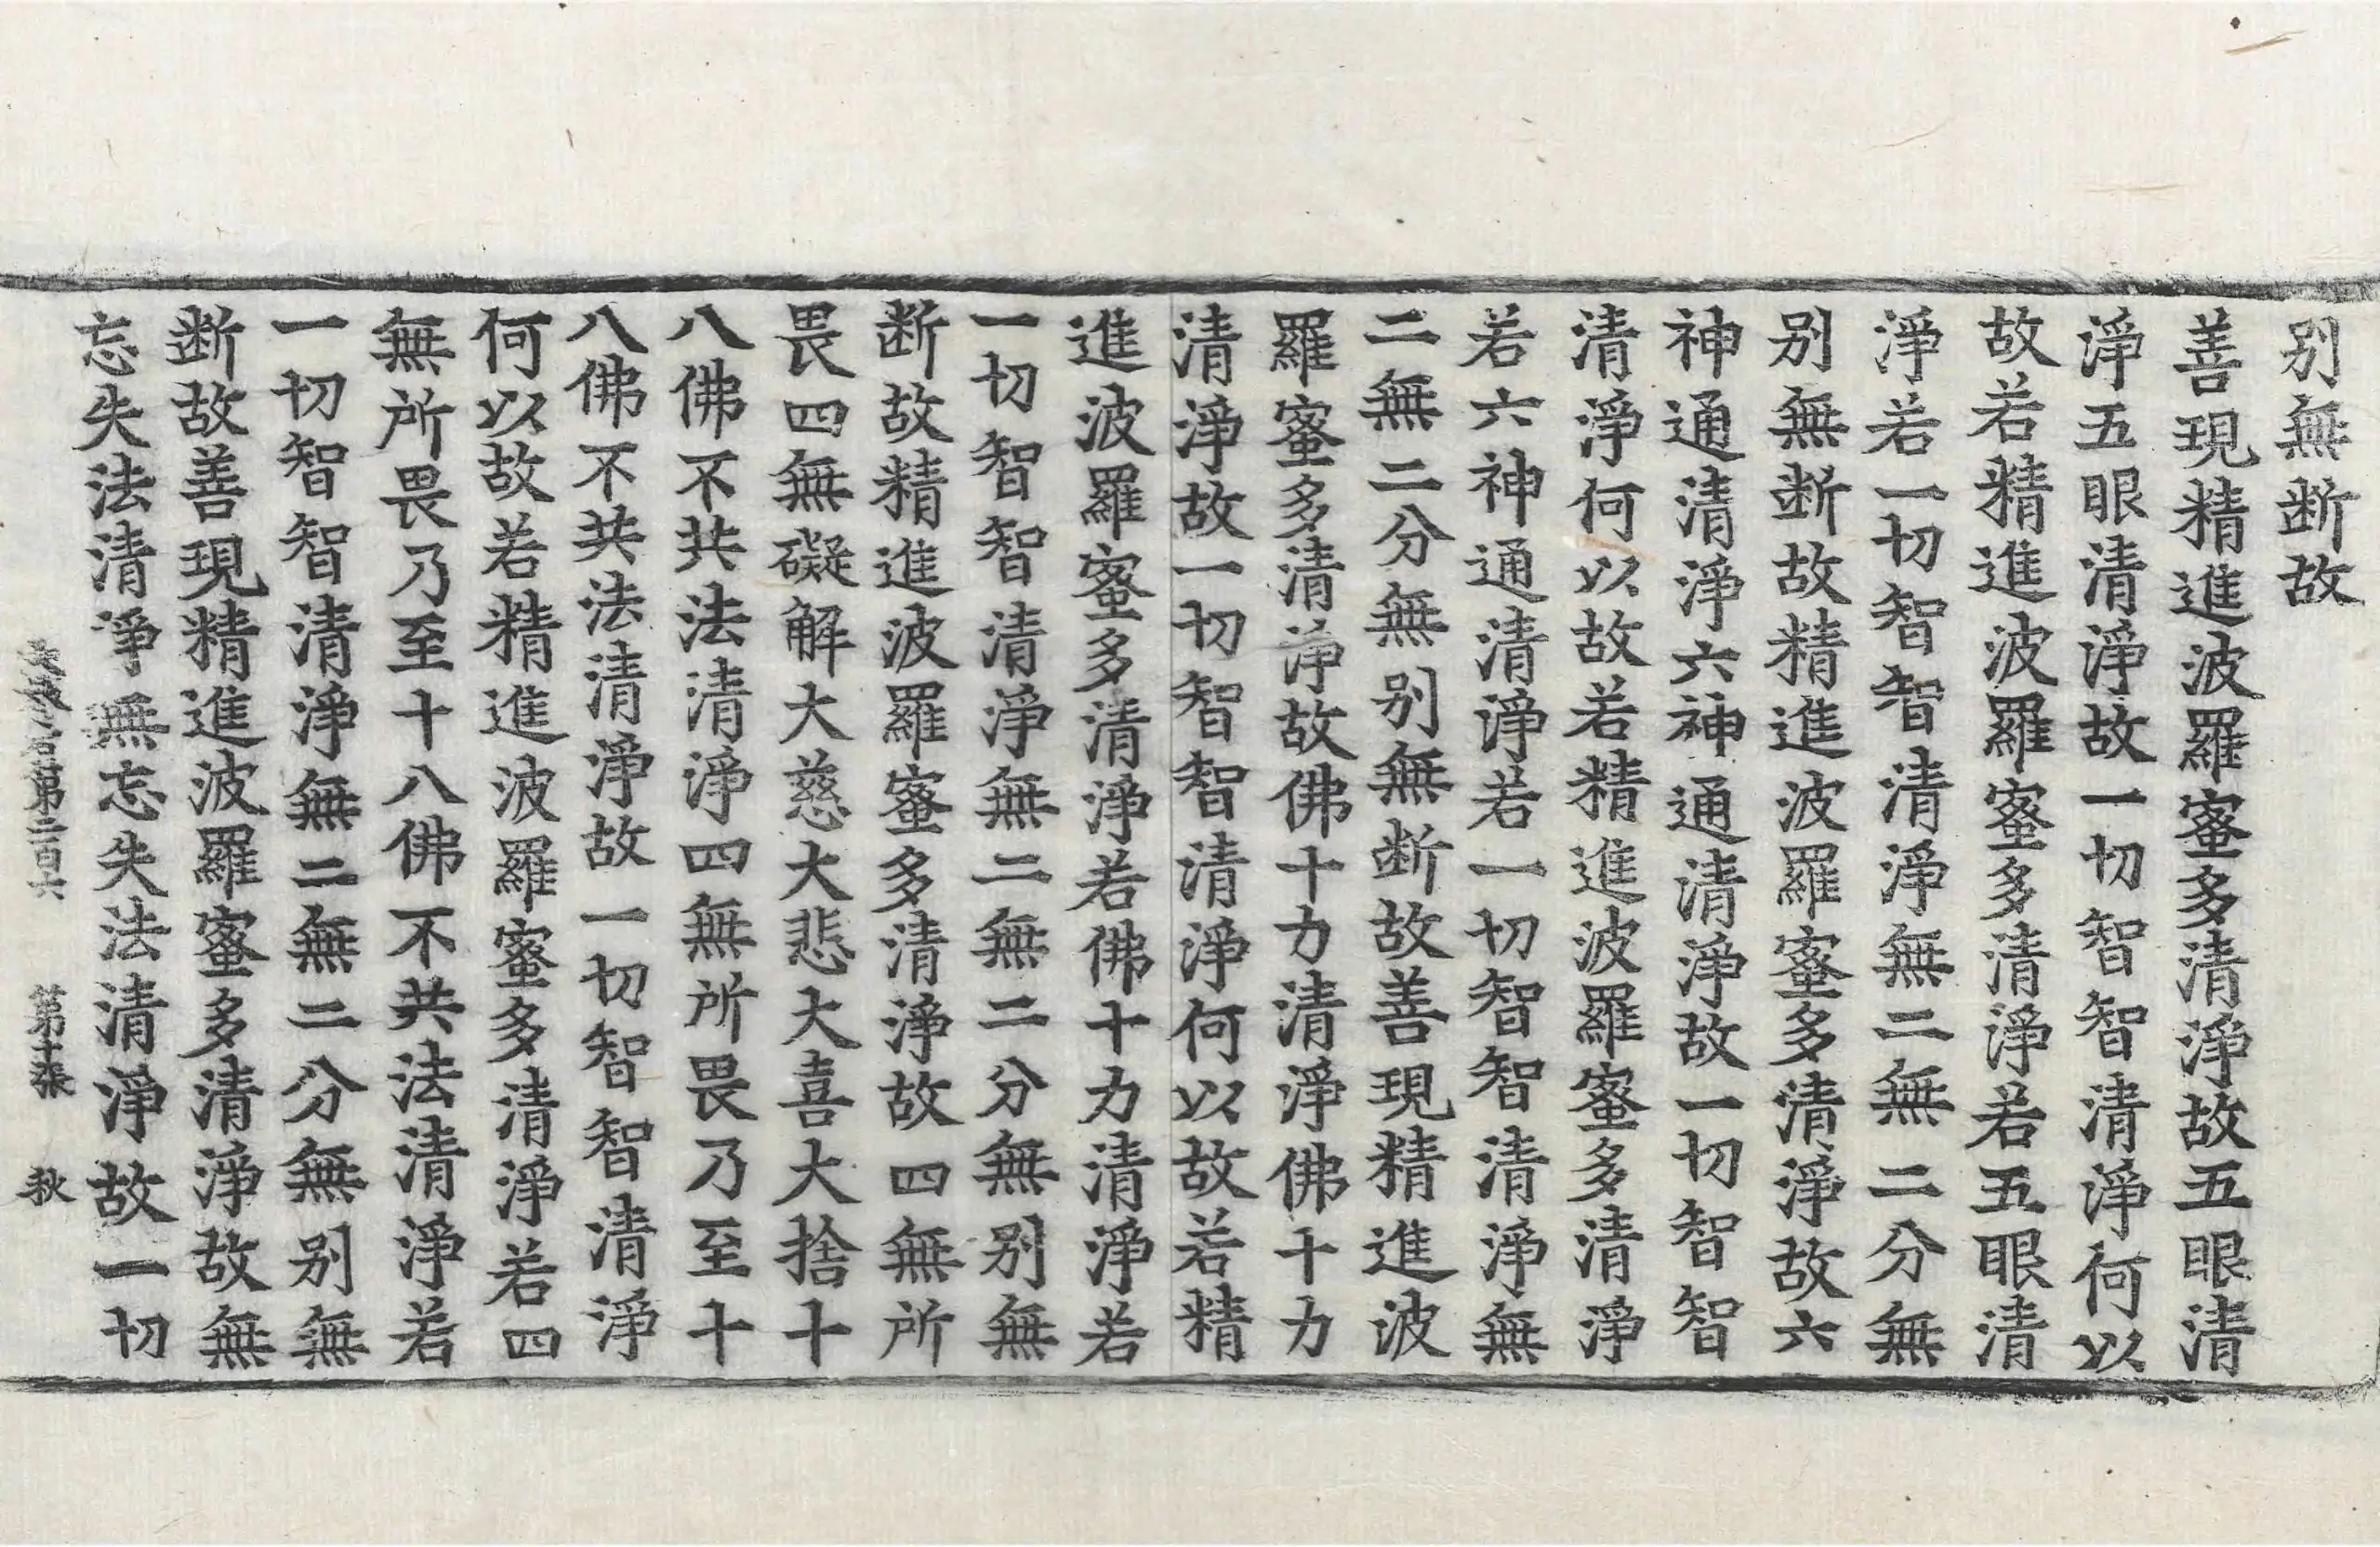 别無断故
善現精進波羅蜜多清淨故五眼清
淨五眼清淨故一切智智清淨何以
故若精進波羅蜜多清淨若五眼清
淨若一切智智清淨無二無二分無
别無断故精進波羅蜜多清淨故六
神通清淨六神通清淨故一切智智
清淨何以故若精進波羅蜜多清淨
若六神通清淨若一切智智清淨無
二無二分無别無断故善現精進波
羅蜜多清淨故佛十力清淨佛十力
清淨故一切智智清淨何以故若精
進波羅蜜多清淨若佛十力清淨若
一切智智清淨無二無二分無别無
断故精進波羅蜜多清淨故四無所
畏四無礙解大慈大悲大喜大捨十
八佛不共法清淨四無所畏乃至十
八佛不共法清淨故一切智智清淨
何以故若精進波羅蜜多清淨若四
無所畏乃至十八佛不共法清淨若
一切智智清淨無二無二分無别無
断故善現精進波羅蜜多清淨故無
忘失法清淨無忘失法清淨故一切
第二百六 第十張 秋